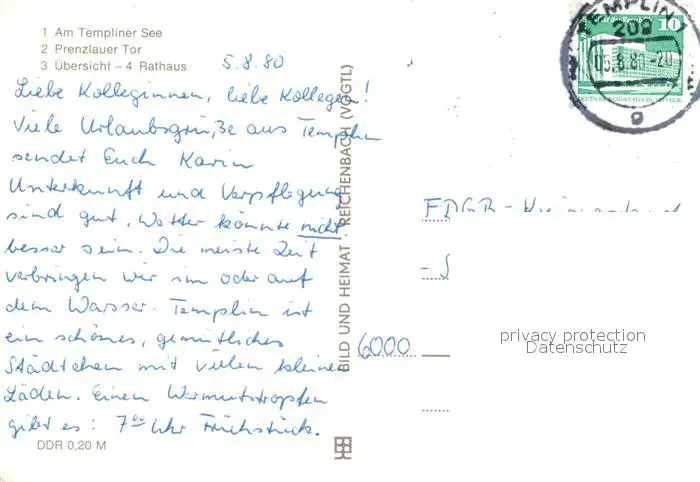 1 Am Templiner See
2 Prenzlauer Tor
3 Übersicht – 4 Rathaus
5.8.80
Liebe Kolleginnen, liebe Kollegen!
Viele Urlaubsgrüße aus Templin
sendet Euch Karin
Unterkunft und Verpflegung
sind gut. Wetter könnte nicht
besser sein. Die meiste Zeit
verbringen wir im oder auf
dem Wasser. Templin ist
ein schönes, gemütliches
Städtchen mit vielen kleinen
Läden. Einen Wermutstropfen
gibt es: 7⁰⁰ Uhr Frühstück.
DDR 0,20 M
BILD UND HEIMAT REICHENBACH (VOGTL)
TEMPLIN 1
209
05.8.80-20
10
DEUTSCHE DEMOKRATISCHE REPUBLIK
FDGB-
6000
privacy protection
Datenschutz